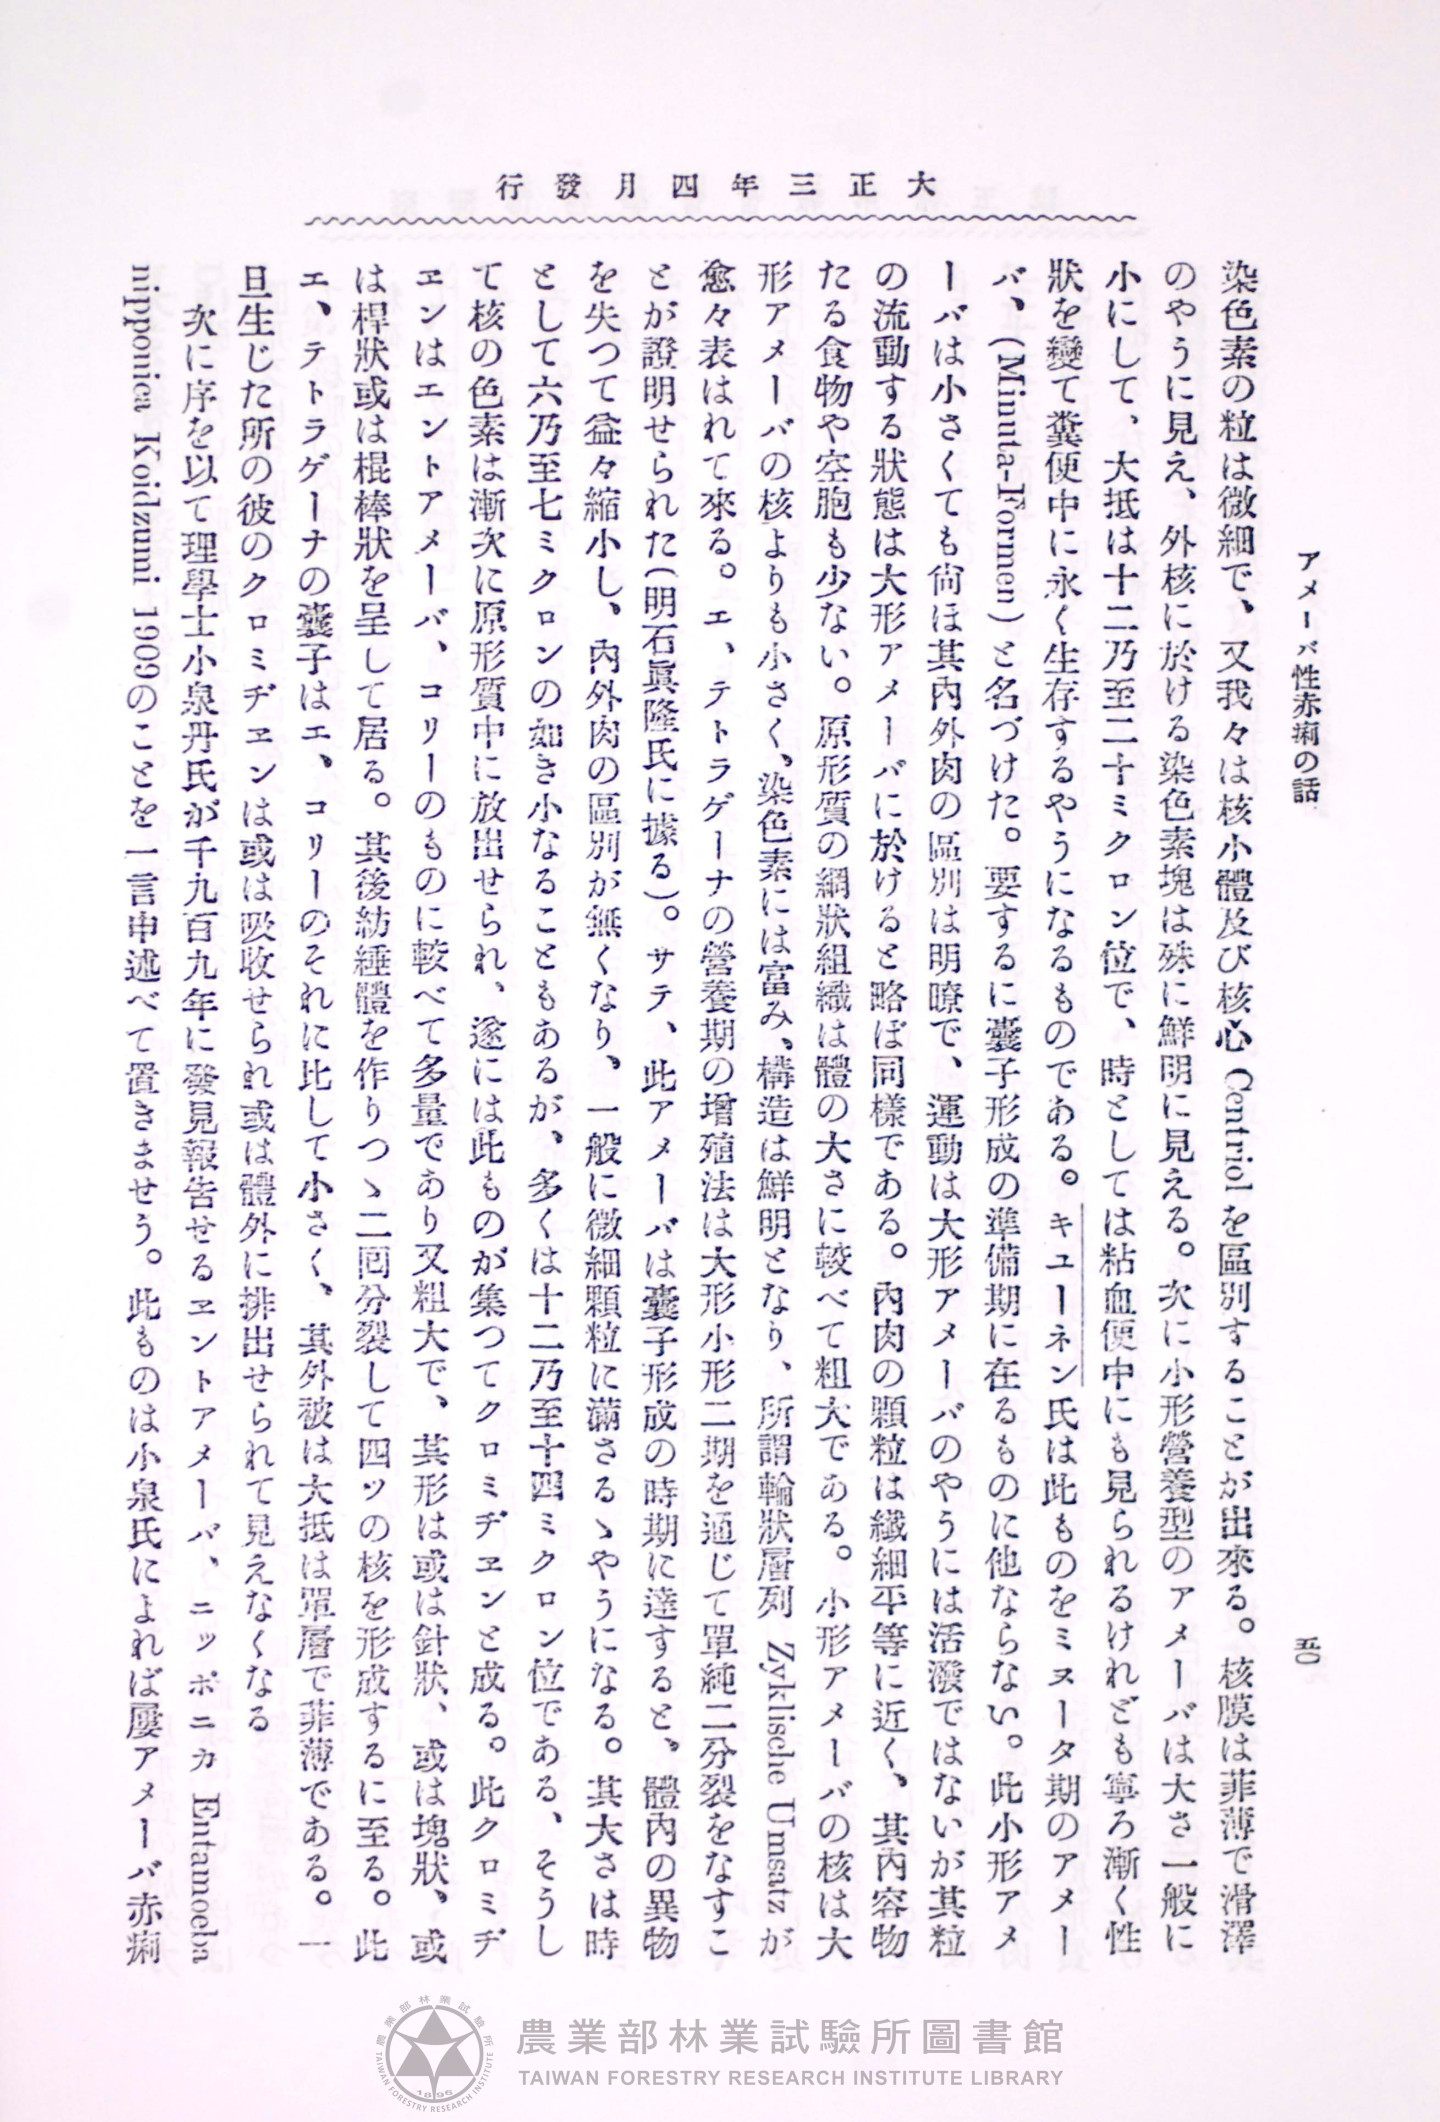 大正三年四月發行
アメーバ性赤痢の話
五〇
染色素の粒は微細で、又我々は核小體及び核心 Centriol を區別することが出來る。核膜は菲薄で滑澤
のやうに見え、外核に於ける染色素塊は殊に鮮明に見える。次に小形營養型のアメーバは大さ一般に
小にして、大抵は十二乃至二十ミクロン位で、時としては粘血便中にも見られるけれども寧ろ漸く性
狀を變て糞便中に永く生存するやうになるものである。キユーネン氏は此ものをミヌータ期のアメー
バ、(Minuta-Formen)と名づけた。要するに囊子形成の準備期に在るものに他ならない。此小形アメ
ーバは小さくても尙ほ其內外肉の區別は明瞭で、運動は大形アメーバのやうには活潑ではないが其粒
の流動する狀態は大形アメーバに於けると略ぼ同樣である。內肉の顆粒は纎細平等に近く、其內容物
たる食物や空胞も少ない。原形質の網狀組織は體の大さに較べて粗大である。小形アメーバの核は大
形アメーバの核よりも小さく、染色素には富み、構造は鮮明となり、所謂輪狀層列 Zyklische Umsatz が
愈々表はれて來る。エ、テトラゲーナの營養期の增殖法は大形小形二期を通じて單純二分裂をなすこ
とが證明せられた(明石眞隆氏に據る)。サテ、此アメーバは囊子形成の時期に達すると、體內の異物
を失つて益々縮小し、內外肉の區別が無くなり、一般に微細顆粒に滿さるゝやうになる。其大さは時
として六乃至七ミクロンの如き小なることもあるが、多くは十二乃至十四ミクロン位である、そうし
て核の色素は漸次に原形質中に放出せられ、遂には此ものが集つてクロミヂヱンと成る。此クロミヂ
ヱンはエントアメーバ、コリーのものに較べて多量であり又粗大で、其形は或は針狀、或は塊狀、或
は桿狀或は棍棒狀を呈して居る。其後紡綞體を作りつゝ二囘分裂して四ツの核を形成するに至る。此
エ、テトラゲーナの囊子はエ、コリーのそれに比して小さく、其外被は大抵は單層で菲薄である。一
旦生じた所の彼のクロミヂヱンは或は吸收せられ或は體外に排出せられて見えなくなる
次に序を以て理學士小泉丹氏が千九百九年に發見報告せるヱントアメーバ、ニッポニカ Entamoeba
nipponica Koidzumi 1909のことを一言申述べて置きませう。此ものは小泉氏によれば屢アメーバ赤痢
農業部林業試驗所圖書館
TAIWAN FORESTRY RESEARCH INSTITUTE LIBRARY
農業部林業試驗所
TAIWAN FORESTRY RESEARCH INSTITUTE
1896